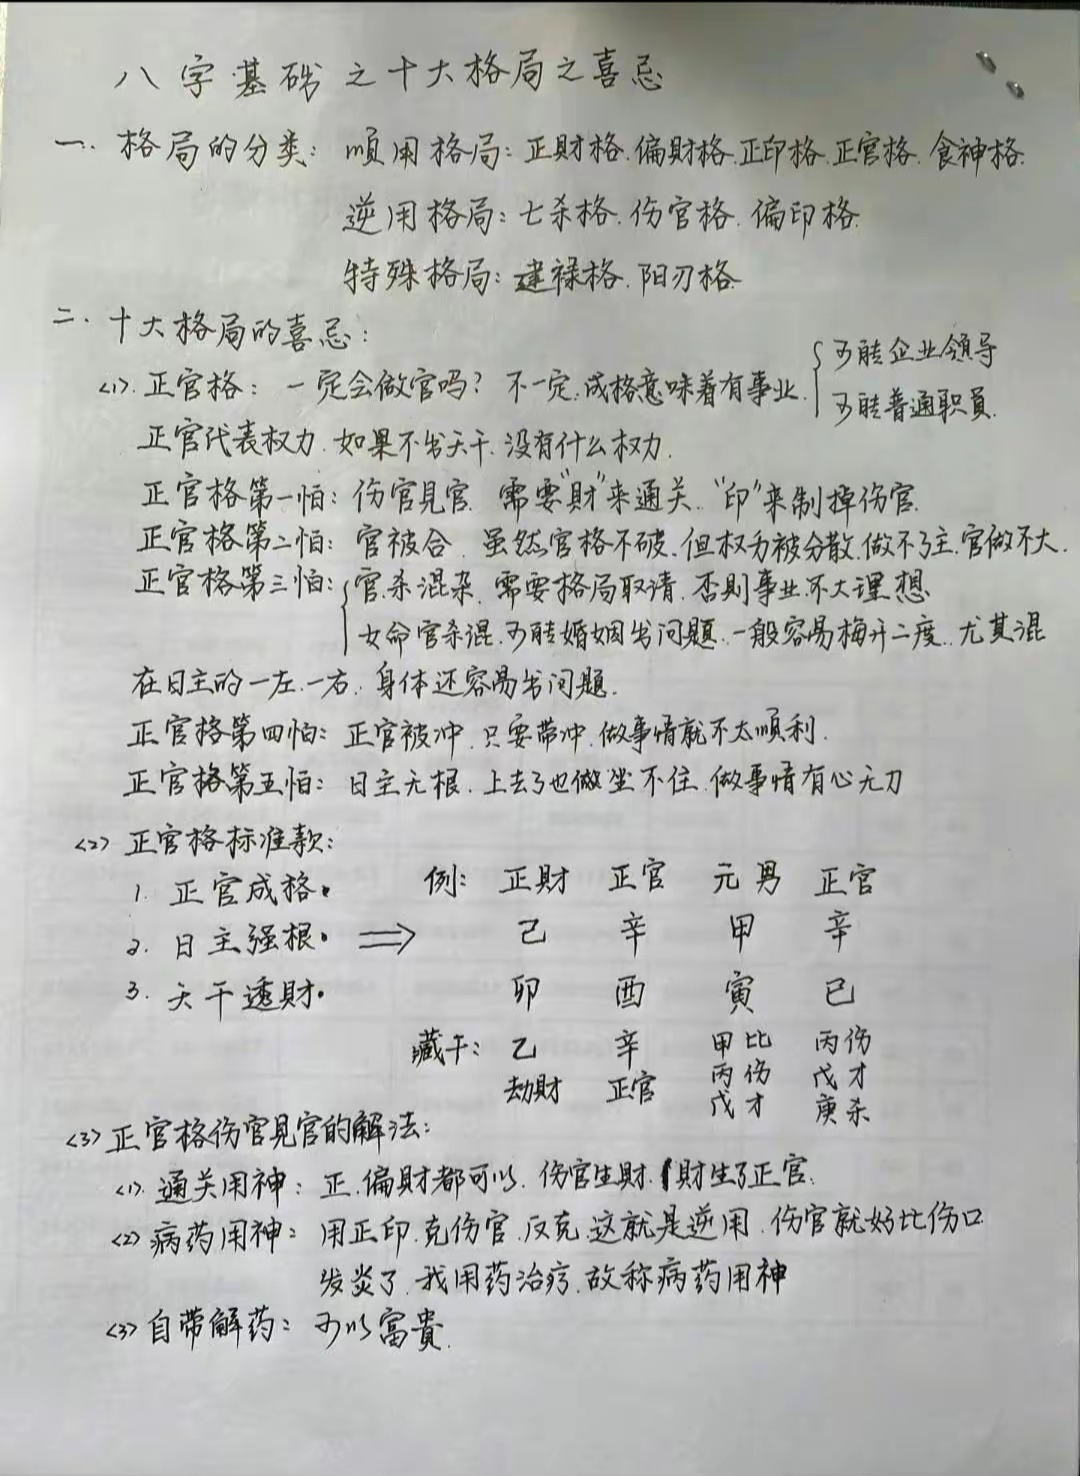 八字基础之十大格局之喜忌
一. 格局的分类: 順用格局: 正財格. 偏財格. 正印格. 正官格. 食神格.
逆用格局: 七杀格. 伤官格. 偏印格.
特殊格局: 建禄格. 阳刃格
二. 十大格局的喜忌:
<1>. 正官格: 一定会做官吗? 不一定, 成格意味着有事业.
可能企业领导
可能普通职员.
正官代表权力. 如果不出天干. 没有什么权力.
正官格第一怕: 伤官见官. 需要"財"来通关. "印"来制掉伤官.
正官格第二怕: 官被合. 虽然官格不破, 但权力被分散, 做不了主, 官做不大.
正官格第三怕: 官杀混杂. 需要格局取请. 否则事业不大理想
女命官杀混, 可能婚姻出问题. 一般容易梅开二度. 尤其混
在日主的一左. 一右. 身体还容易出问题.
正官格第四怕: 正官被冲. 只要带冲. 做事情就不太順利.
正官格第五怕: 日主无根. 上去了也做坐不住. 做事情有心无力
<2> 正官格标准款:
1. 正官成格.
2. 日主强根. ⇒
3. 天干透財.
例: 正財 正官 元男 正官
己 辛 甲 辛
卯 酉 寅 巳
藏干: 乙 辛 甲比 丙伤
劫財 正官 丙伤 戊才
戊才 庚杀
<3> 正官格伤官见官的解法:
<1>. 通关用神: 正. 偏財都可以. 伤官生財. 財生了正官.
<2> 病药用神: 用正印. 克伤官. 反克. 这就是逆用. 伤官就好比伤口
发炎了. 我用药治疗. 故称病药用神
<3> 自带解药: 可以富貴.